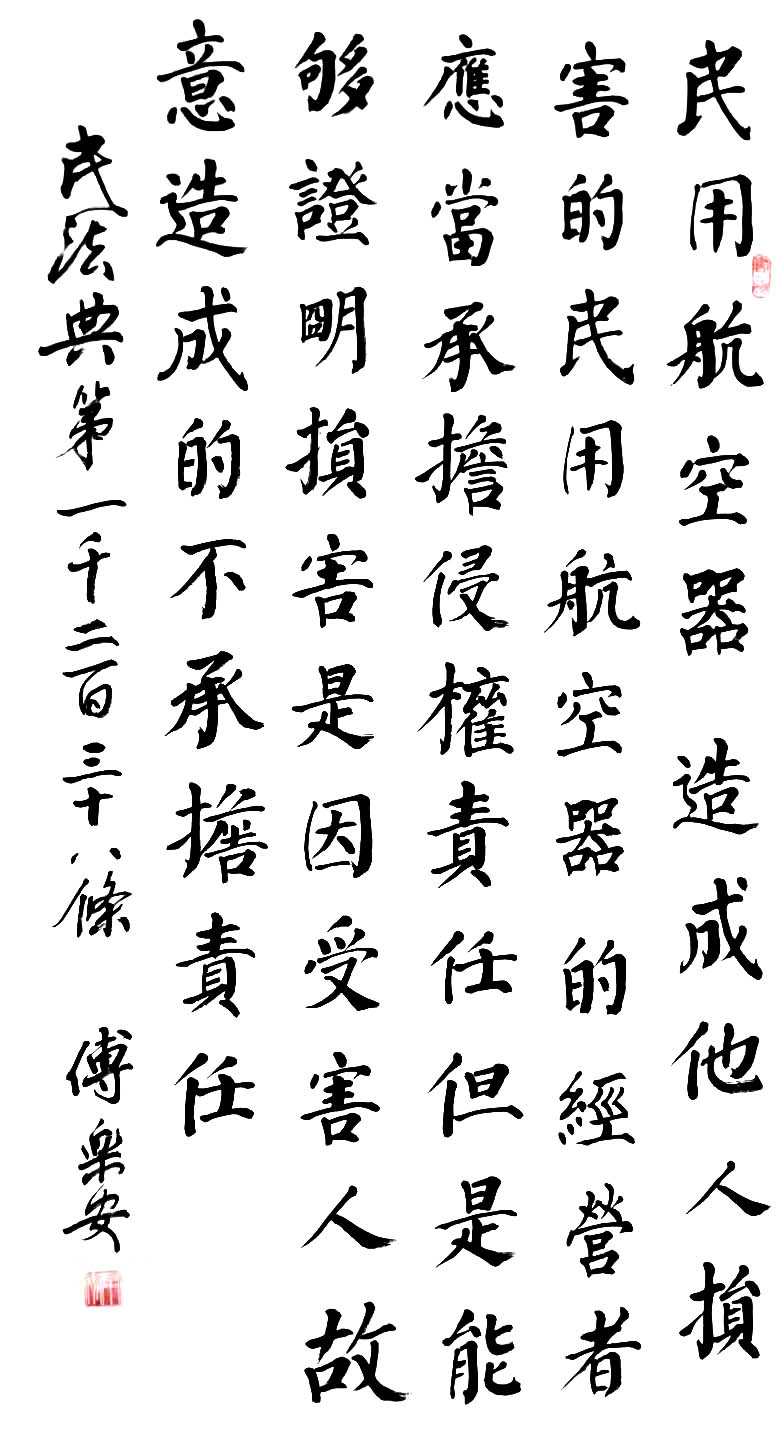 民用航空器造成他人損
害的民用航空器的經營者
應當承擔侵權責任但是能
够證明損害是因受害人故
意造成的不承擔責任
民法典第一千二百三十八條
傅樂安